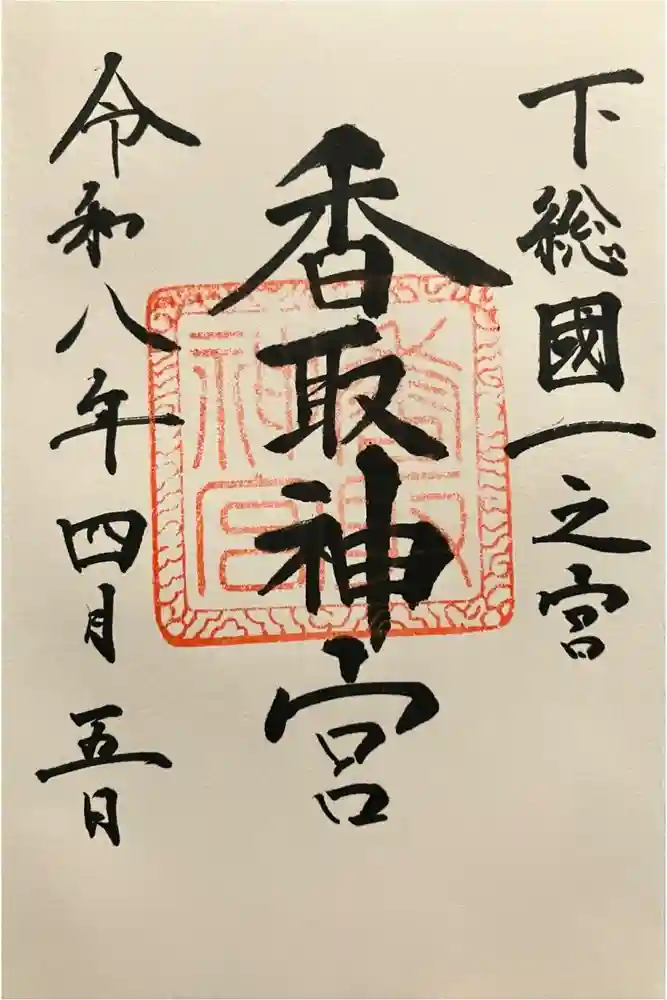 下総國一之宮
香取神宮
令和八年四月五日
香取神宮